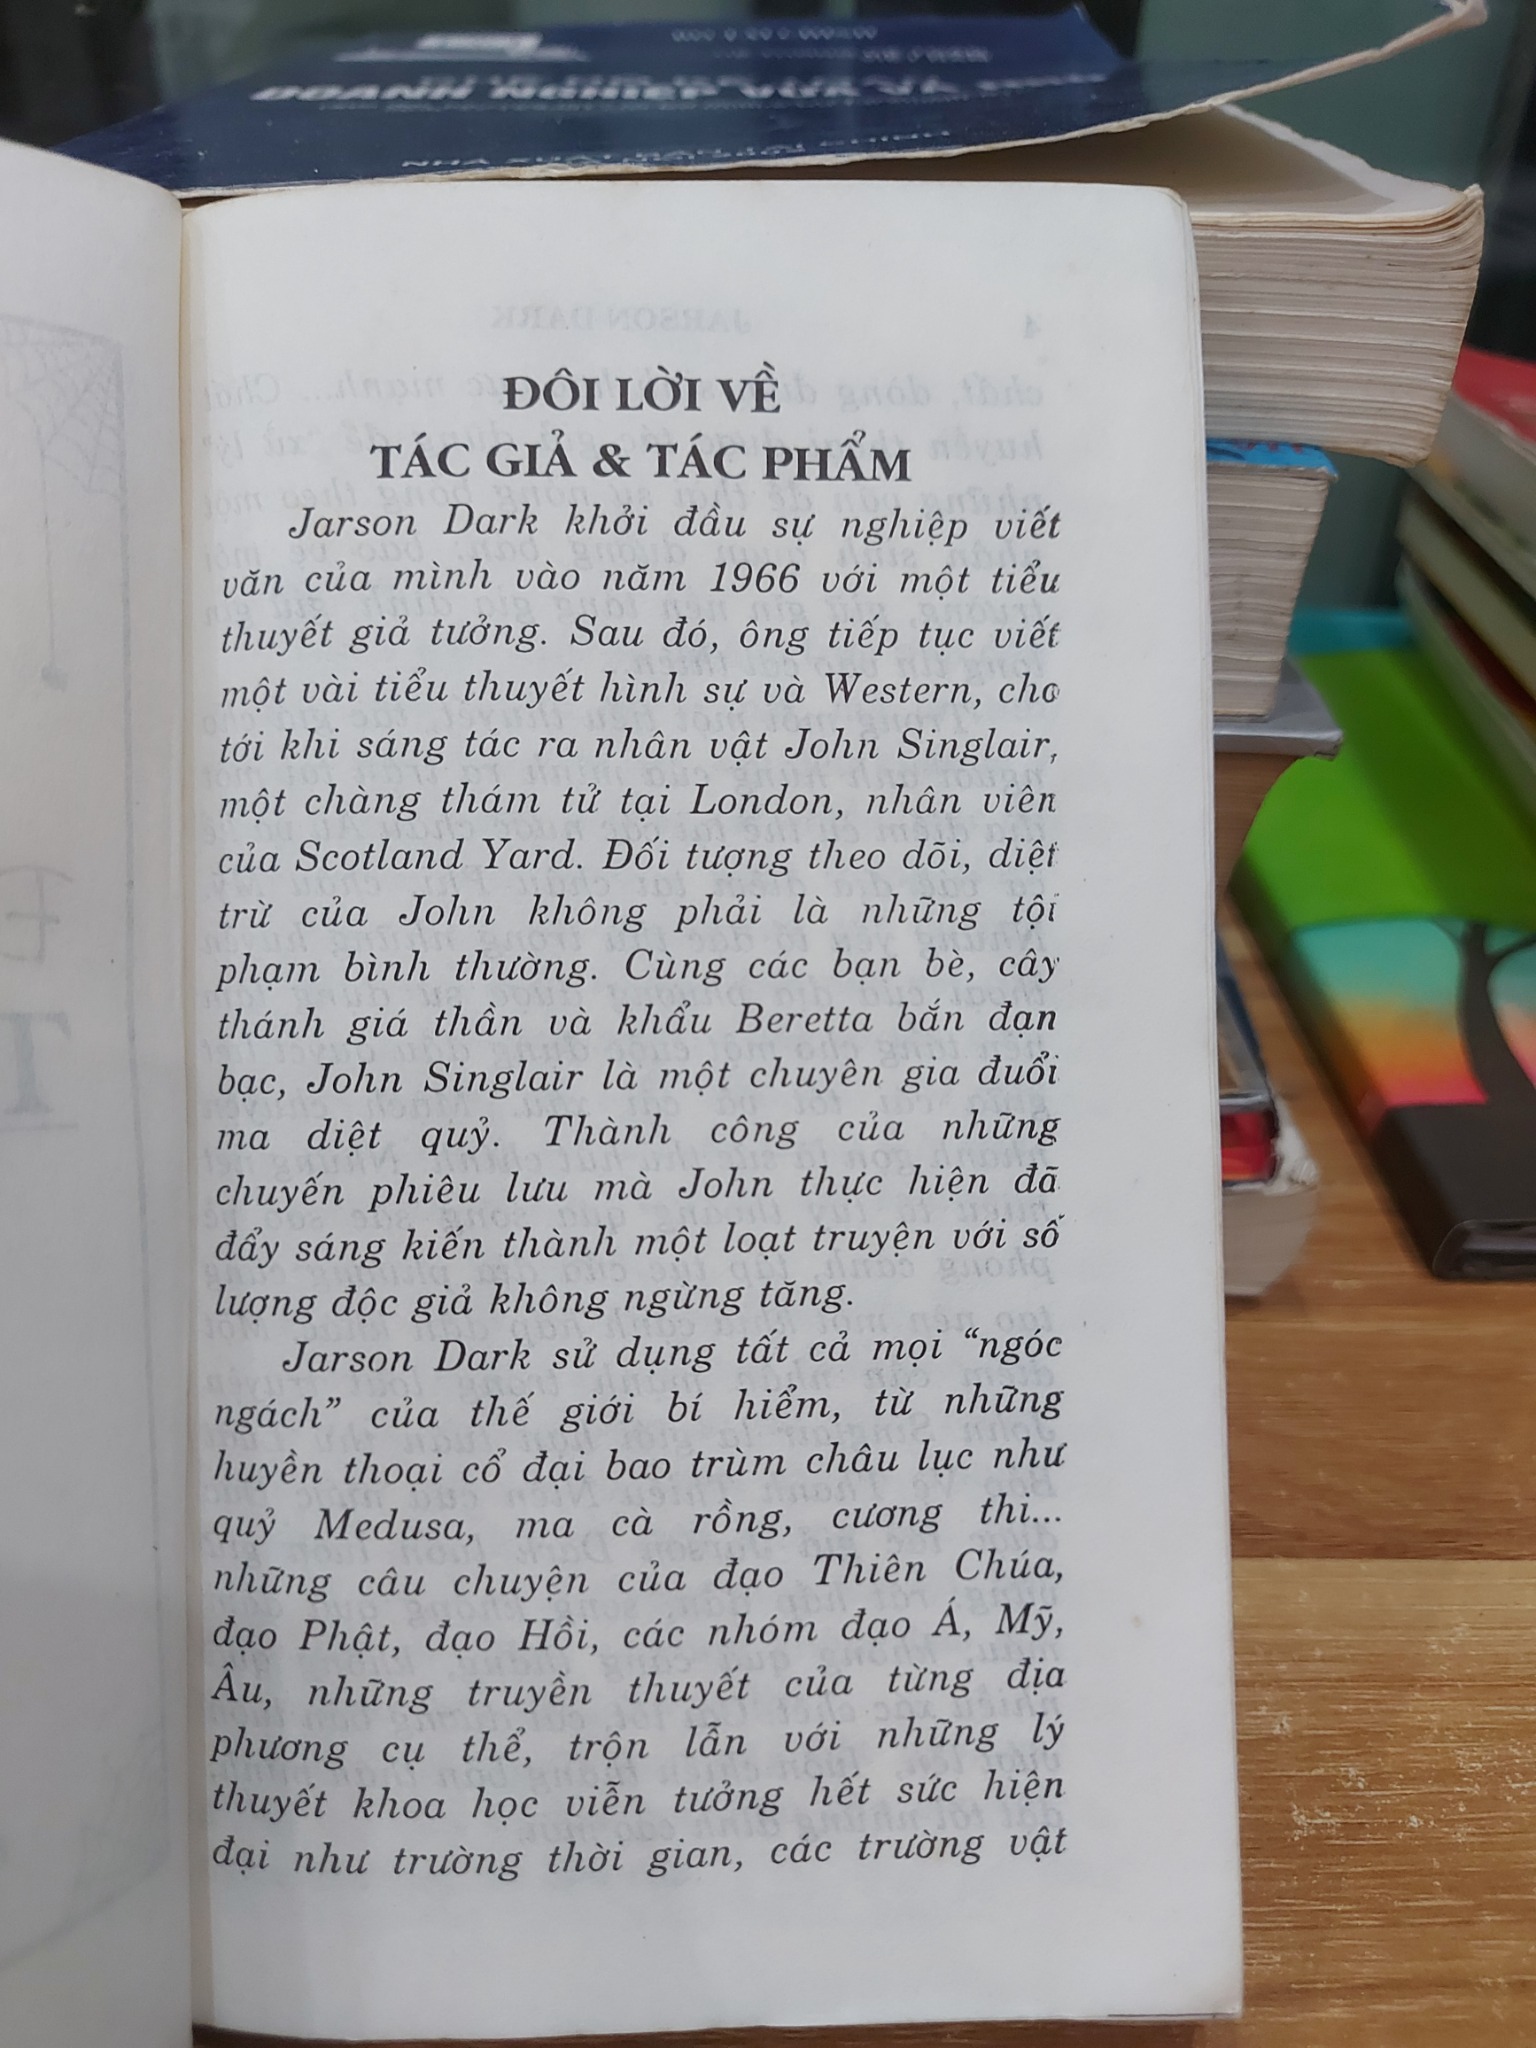 DOANH NGHIỆP VỪA VÀ
ĐÔI LỜI VỀ
TÁC GIẢ & TÁC PHẨM
Jarson Dark khởi đầu sự nghiệp viết
văn của mình vào năm 1966 với một tiểu
thuyết giả tưởng. Sau đó, ông tiếp tục viết
một vài tiểu thuyết hình sự và Western, cho
tới khi sáng tác ra nhân vật John Singlair,
một chàng thám tử tại London, nhân viên
của Scotland Yard. Đối tượng theo dõi, diệt
trừ của John không phải là những tội
phạm bình thường. Cùng các bạn bè, cây
thánh giá thần và khẩu Beretta bắn đạn
bạc, John Singlair là một chuyên gia đuổi
ma diệt quỷ. Thành công của những
chuyến phiêu lưu mà John thực hiện đã
đẩy sáng kiến thành một loạt truyện với số
lượng độc giả không ngừng tăng.
Jarson Dark sử dụng tất cả mọi “ngóc
ngách” của thế giới bí hiểm, từ những
huyền thoại cổ đại bao trùm châu lục như
quỷ Medusa, ma cà rồng, cương thi...
những câu chuyện của đạo Thiên Chúa,
đạo Phật, đạo Hồi, các nhóm đạo Á, Mỹ,
Âu, những truyền thuyết của từng địa
phương cụ thể, trộn lẫn với những lý
thuyết khoa học viễn tưởng hết sức hiện
đại như trường thời gian, các trường vật